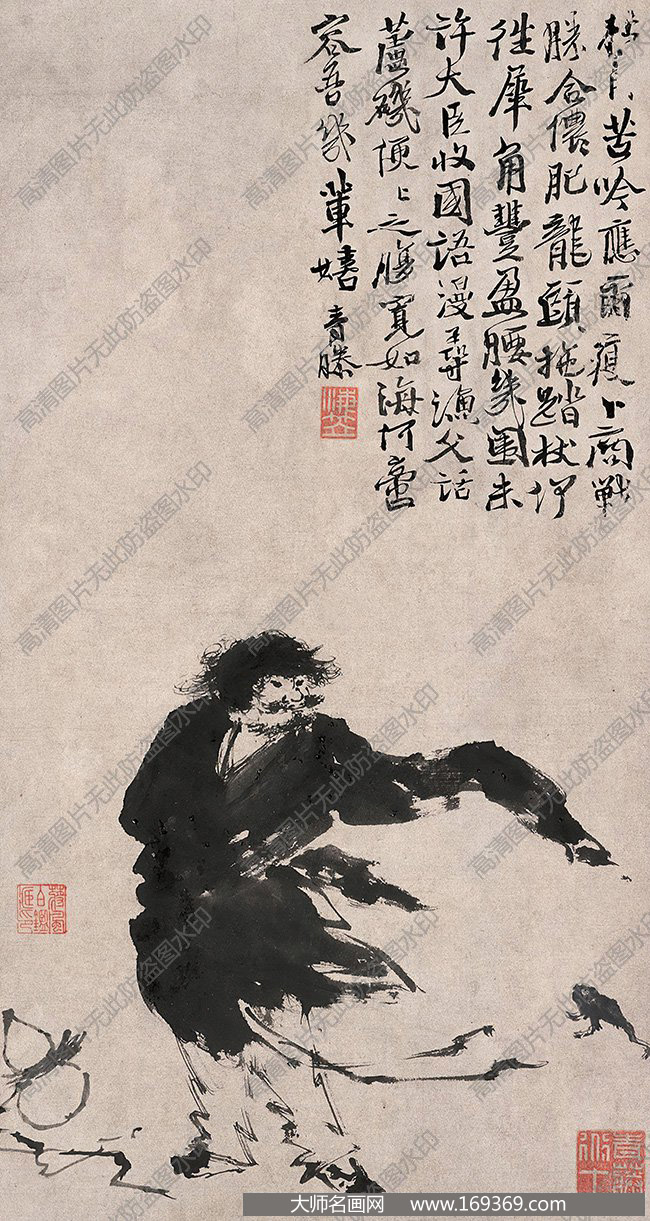 苦吟應面瘦卜商戰
勝合儂肥龍頭拖踏杖
犀角豐盈腰幾圍未
許大臣收國語漫尋漁父話
蘆磯便〻之腹寬如海何啻
容吾幾輩嬉 青藤
高清图片无此防盗图水印
大师名画网 www.169369.com